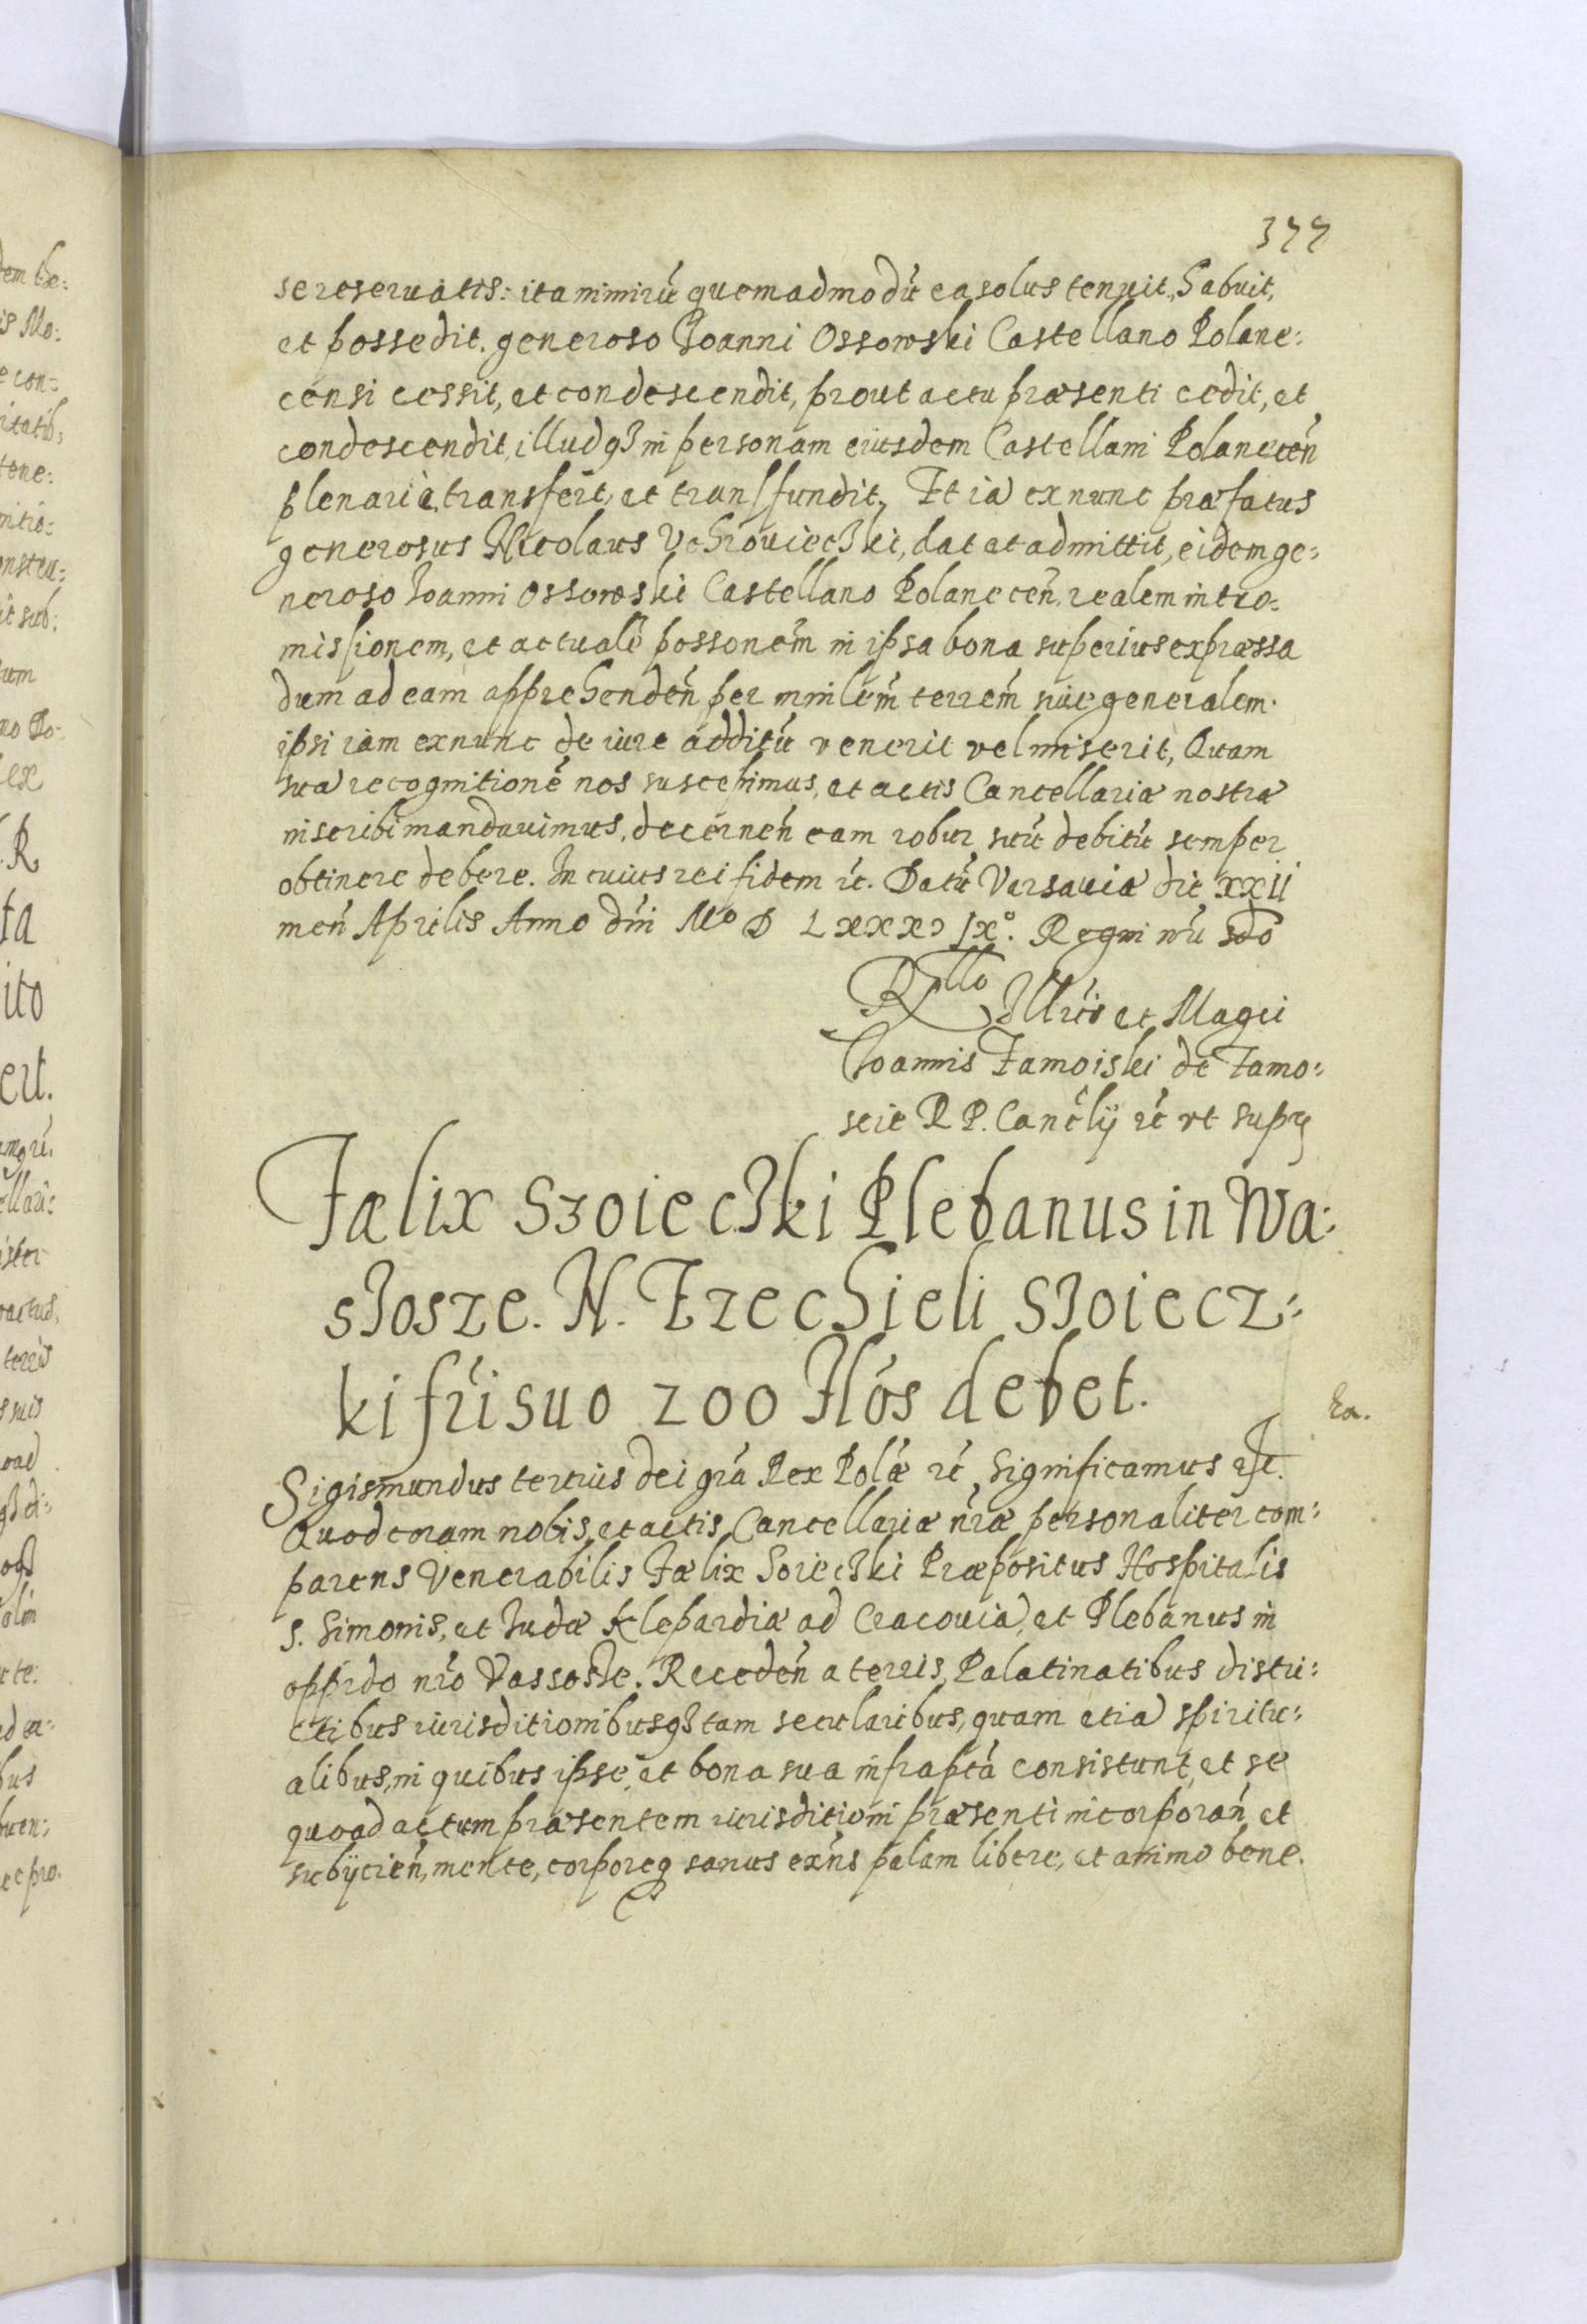 377
se reseruatis: ita nimirũ quemadmodũ ea solus tenuit, habuit,
et possedit. generoso Joanni Ossowski Castellano Polane:
censi cessit, et condescendit, prout actu præsenti cedit, et
condescendit, illudq3 in personam eiusdem Castellani Polanecen̄
plenarie transfert, et transfundit. Et iã ex nunc præfatus
generosus Nicolaus Vchrouieczki, dat et admittit, eidem ge:
neroso Joanni Ossowski Castellano Polanecen̄. realem intro:
missionem, et actualẽ possonem̄ in ipsa bona superius expressa
dum ad eam apprehenden̄ per minilem̄ terrem̄ siue generalem
ipsi iam exnunc de iure additũ venerit vel miserit, Quam
suã recognitionẽ nos suscepimus, et actis Cancellariæ nostræ
inscribi mandauimus, decernen̄ eam robur suũ debitũ semper
obtinere debere. In cuius rei fidem ṙc. Datũ Varsauiæ die XXII
men̄ Aprilis Anno dn̄i Mº D LXXXIXº. Regni nr̄i sdo
Rllo Illris et Magci
Joannis Zamoiski de Zamo:
scie R P. Canc̄lij ṙc vt supra
Fælix Szoieczki Plebanus in Wa:
szosze. N. Ezechieli Szoiecz:
ki fr̄i suo 200 Flos debet.
Ra.
Sigismundus tertius dei gr̄a Rex Pol̄æ ṙc significamus ṙc.
Quod coram nobis, et actis Cancellariæ nr̄æ personaliter com:
parens Venerabilis Fælix Soieczki Præpositus Hospitalis
S. Simonis, et Judæ Klepardiæ ad Cracouiã, et Plebanus in
oppido nr̄o Vassosze. Receden̄ a terris, Palatinatibus distri:
ctibus iurisditionibusq3 tam secularibus, quam etiã spiritu:
alibus, in quibus ipse, et bona sua infrapta consistunt, et se
quoad actum præsentem iurisditioni præsenti incorporan̄ et
subijcien̄, mente, corporeq sanus exn̄s palam libere, et animo bene.